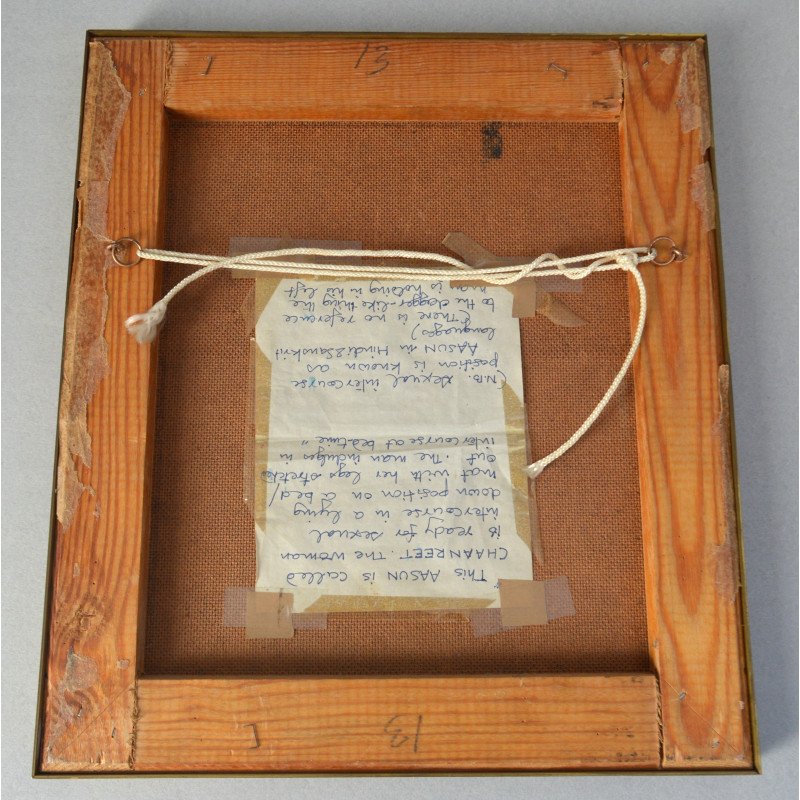 13
"This AASUN is called
CHAANREET. The woman
is ready for sexual
intercourse in a lying
down position on a bed/
mat with her legs stretched
out. The man indulges in
intercourse at bedtime"
(N.B. sexual intercourse
position is known as
AASUN in Hindi & Sanskrit
languages)
(There is no reference
to the dagger-like thing the
man is holding in his left
13